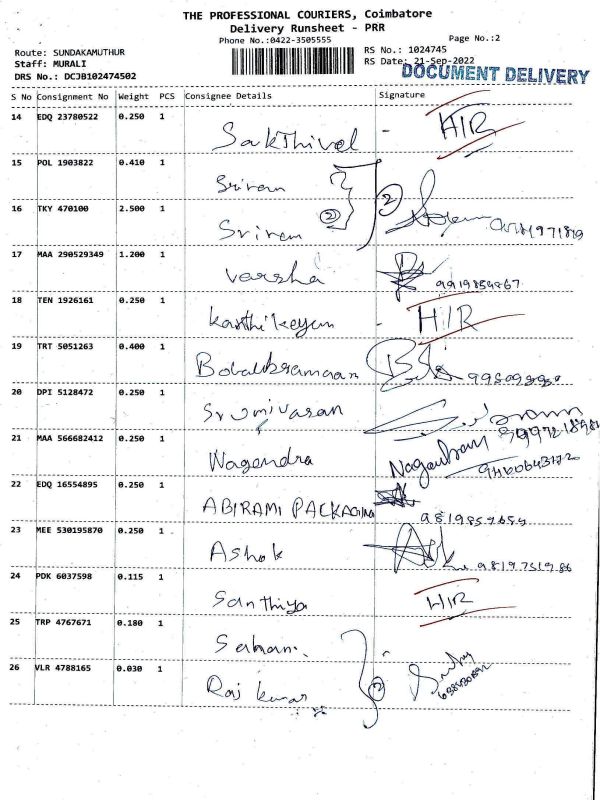 THE PROFESSIONAL COURIERS, Coimbatore
Delivery Runsheet - PRR
Phone No.:0422-3505555
Page No.:2
Route: SUNDAKAMUTHUR
RS No.: 1024745
Staff: MURALI
RS Date: 21-Sep-2022
DOCUMENT DELIVERY
DRS No.: DCJB102474502
S No Consignment No Weight PCS Consignee Details Signature
14 EDQ 23780522 0.250 1
Sakthivel - H/R
15 POL 1903822 0.410 1
Sriram
16 TKY 470100 2.500 1
Sriram 2 2
17 MAA 290529349 1.200 1
Varsha
18 TEN 1926161 0.250 1
Karthikeyan - H/R
19 TRT 5051263 0.400 1
20 DPI 5128472 0.250 1
Srinivasan
21 MAA 566682412 0.250 1
Nagendra
22 EDQ 16554895 0.250 1
ABIRAMI PACKAGING
23 MEE 530195870 0.250 1
Ashok
24 PDK 6037598 0.115 1
Santhiya H/R
25 TRP 4767671 0.180 1
26 VLR 4788165 0.030 1
Raj kumar 2